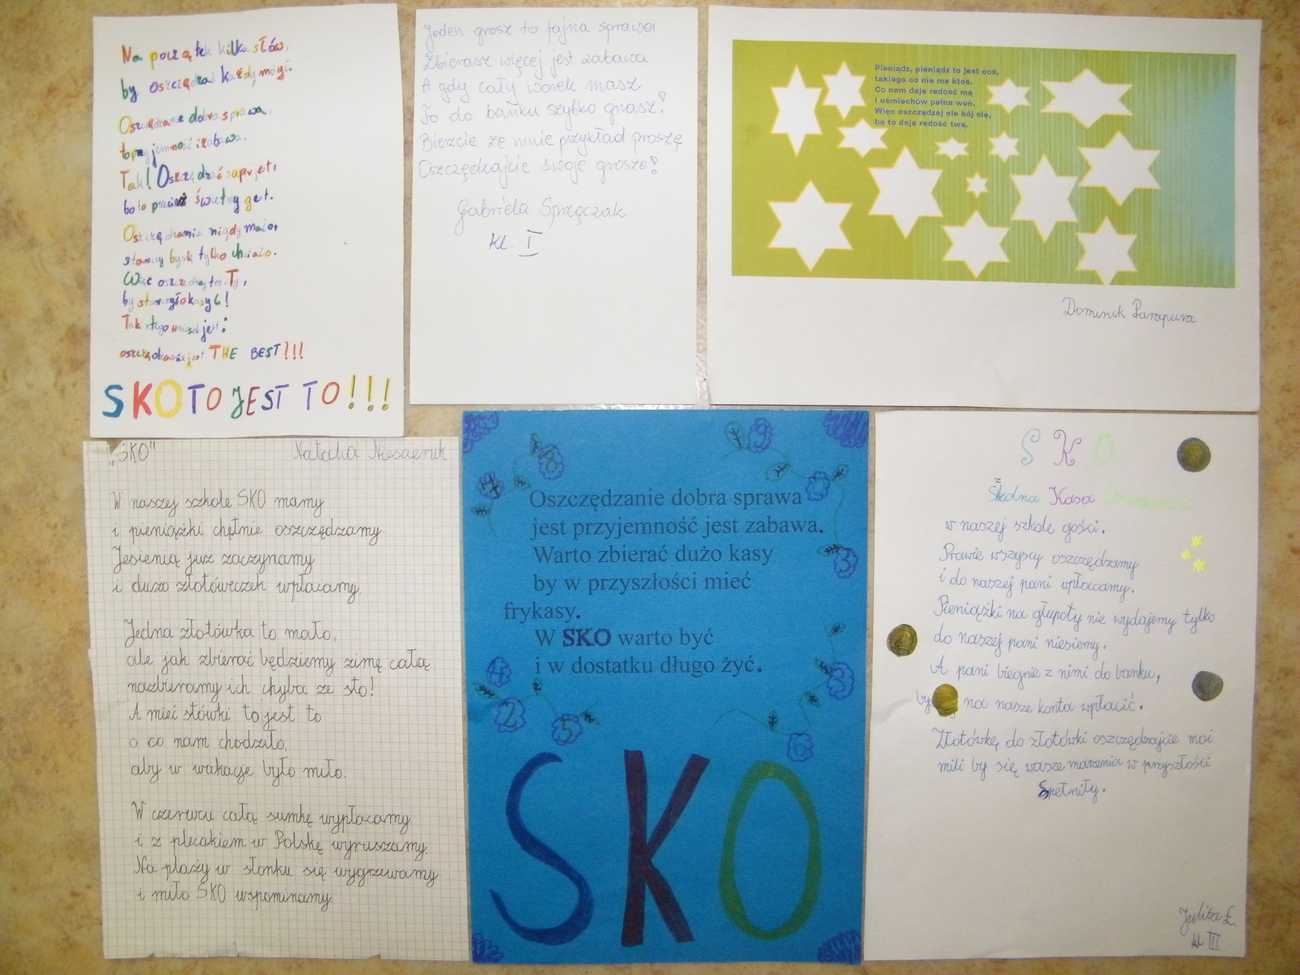 Na początek kilka słów,
by oszczędzać każdy mógł.
Oszczędzanie dobra sprawa,
to przyjemność i zabawa.
Tak! Oszczędzać
bo to przecież świetny gest.
Oszczędzania nigdy mało,
słowacy byk tylko chciało.
Więc oszczędzaj też i Ty,
by
Tak
oszczędzanie jest THE BEST!!!
SKO TO JEST TO!!!
Jeden grosz to fajna sprawa
Zbierasz więcej jest zabawa
A gdy cały worek masz
To do banku szybko gnasz!
Bierzcie ze mnie przykład proszę
Oszczędzajcie swoje grosze!
Gabriela Spręczak
kl. I
Pieniądz, pieniądz to jest coś,
takiego co nie ma ktoś.
Co nam daje radość mą
i uśmiechów pełno won.
Więc oszczędzaj nie bój się,
bo to daje radość twą.
Dominik Parapura
„SKO" Natalia
W naszej szkole SKO mamy
i pieniążki chętnie oszczędzamy
Jesienią już zaczynamy
i dużo złotóweczek wpłacamy.
Jedna złotówka to mało,
ale jak zbierać będziemy zimę całą
nazbieramy ich chyba ze sto!
A mieć stówki to jest to
o co nam chodziło,
aby w wakacje było miło.
W czerwcu całą sumkę wypłacamy
i z plecakiem w Polskę wyruszamy.
Na plaży w słonku się wygrzewamy
i miło SKO wspominamy.
Oszczędzanie dobra sprawa
jest przyjemność jest zabawa.
Warto zbierać dużo kasy
by w przyszłości mieć
frykasy.
W SKO warto być
i w dostatku długo żyć.
8
9
4
3
4
3
2
5
6
SKO
SKO
Szkolna Kasa
w naszej szkole gości.
Prawie wszyscy oszczędzamy
i do naszej pani wpłacamy.
Pieniążki na głupoty nie wydajemy tylko
do naszej pani niesiemy.
A pani biegnie z nimi do banku,
by na nasze konta wpłacić.
Złotówkę do złotówki oszczędzajcie moi
mili by się wasze marzenia w przyszłości
Spełniły.
Julita Ł.
kl III